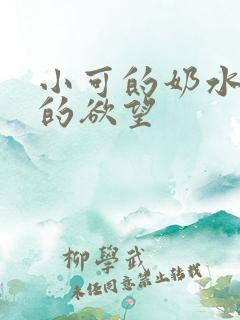 小可的奶水
的欲望
柳學武
未经同意禁止转载